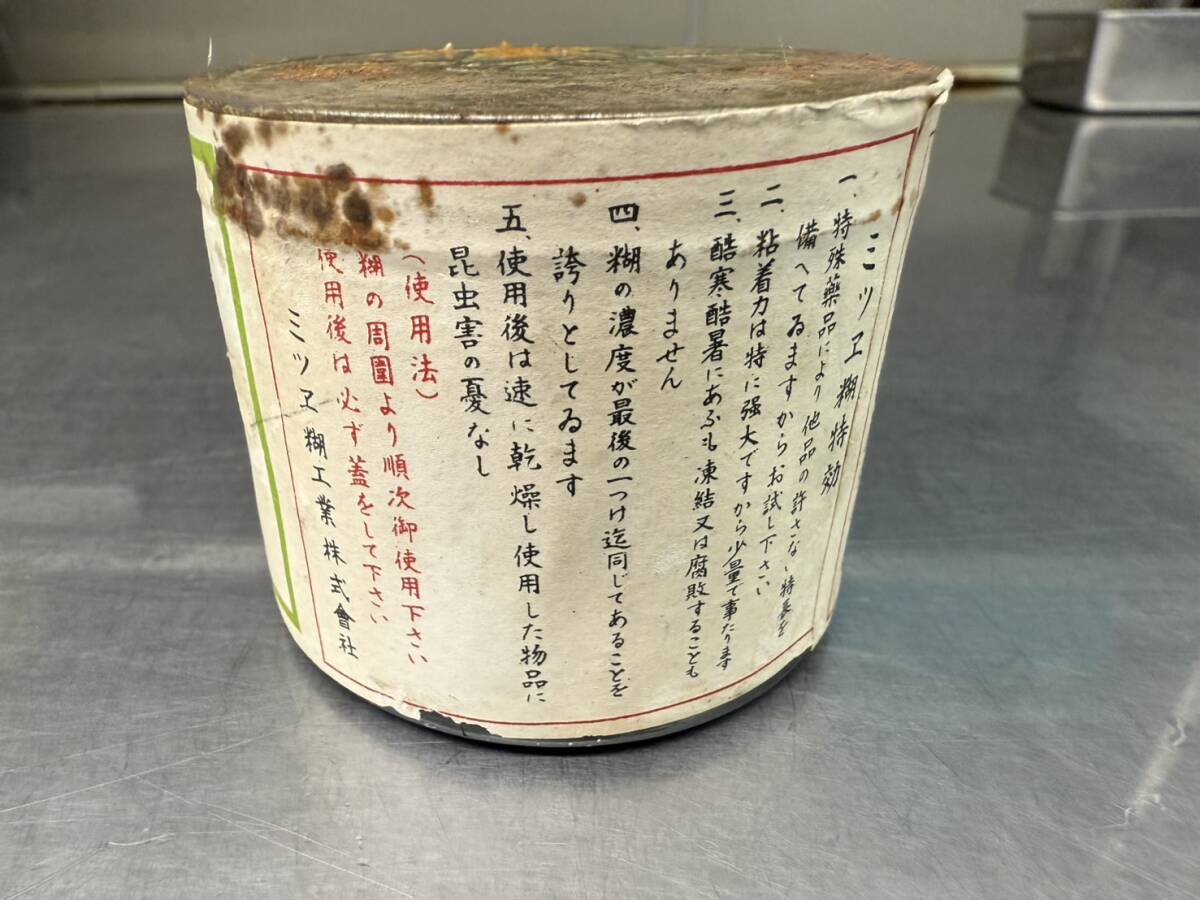 ミツヱ糊特効
一、特殊藥品により他品の許さない特長を
備へてゐますからお試し下さい
二、粘着力は特に强大ですから少量で事たります
三、酷寒酷暑にあふも凍結又は腐敗することも
ありません
四、糊の濃度が最後の一つけ迄同じてあることを
誇りとしてゐます
五、使用後は速に乾燥し使用した物品に
昆虫害の憂なし
(使用法)
糊の周圍より順次御使用下さい
使用後は必ず蓋をして下さい
ミツヱ糊工業株式會社